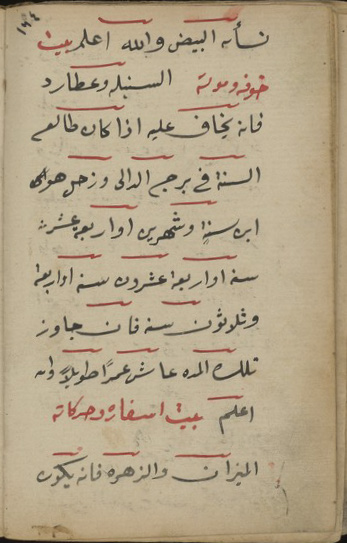 ١٦٤
نسأله البيض والله اعلم بيت
خوفه وموته السنبله وعطارد
فانه يخاف عليه اذا كان طالعه
السنة في برجه الدالى وزحل هو
ابن سنة وشهرين او اربعة عشرت
سنه او اربعة عشرون سنه او اربعة
وثلاثون سنه فان جاوز
تلك المده عاش عمرًا طويلاً
اعلم بيت اسفاره وحركاته
الميزان والزهره فانه يكون